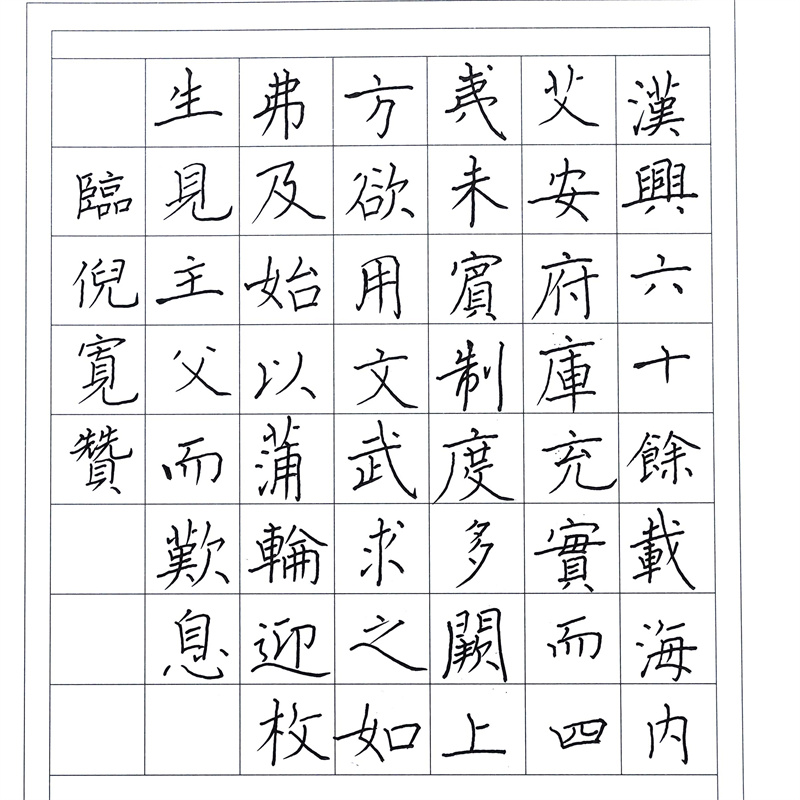 漢興六十餘載海内
艾安府庫充實而四
夷未賓制度多闕上
方欲用文武求之如
弗及始以蒲輪迎枚
生見主父而歎息
臨倪寬贊